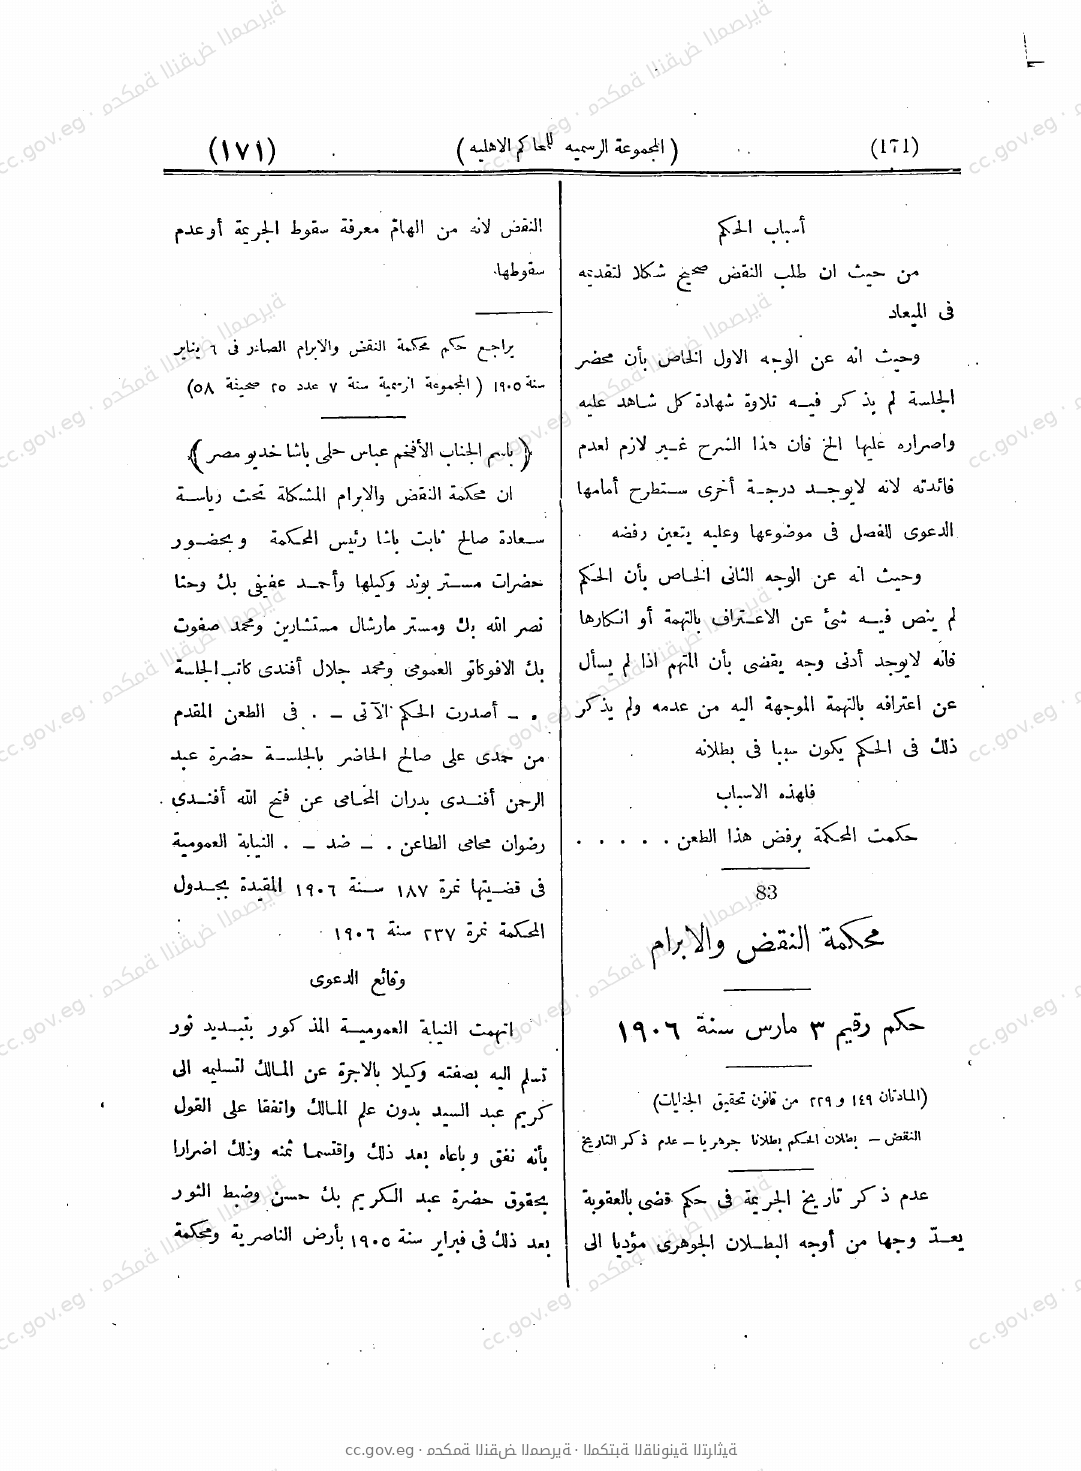 (171)
( المجموعة الرسمية للمحاكم الاهلية )
(١٧١)
أسباب الحكم
من حيث ان طلب النقض صحيح شكلا لتقديمه
فى الميعاد
وحيث انه عن الوجه الاول الخاص بأن محضر
الجلسة لم يذكر فيه تلاوة شهادة كل شاهد عليه
واصراره عليها الخ فان هذا الشرح غير لازم لعدم
فائدته لانه لايوجد درجة أخرى ستطرح أمامها
الدعوى للفصل فى موضوعها وعليه يتعين رفضه
وحيث انه عن الوجه الثانى الخاص بأن الحكم
لم ينص فيه شئ عن الاعتراف بالتهمة أو انكارها
فانه لايوجد أدنى وجه يقضى بأن المتهم اذا لم يسأل
عن اعترافه بالتهمة الموجهة اليه من عدمه ولم يذكر
ذلك فى الحكم يكون سببا فى بطلانه
فلهذه الاسباب
حكمت المحكمة برفض هذا الطعن . . . . .
83
محكمة النقض والابرام
حكم رقيم ٣ مارس سنة ١٩٠٦
(المادتان ١٤٩ و ٢٢٩ من قانون تحقيق الجنايات)
النقض – بطلان الحكم بطلانا جوهريا – عدم ذكر التاريخ
عدم ذكر تاريخ الجريمة فى حكم قضى بالعقوبة
يعدّ وجها من أوجه البطلان الجوهرى مؤديا الى
النقض لانه من الهام معرفة سقوط الجريمة أو عدم
سقوطها.
يراجع حكم محكمة النقض والابرام الصادر فى ٦ يناير
سنة ١٩٠٥ ( المجموعة الرسمية سنة ٧ عدد ٢٥ صحيفة ٥٨)
( باسم الجناب الأفخم عباس حلمى باشا خديو مصر )
ان محكمة النقض والابرام المشكلة تحت رياسة
سعادة صالح ثابت باشا رئيس المحكمة وبحضور
حضرات مستر بوند وكيلها وأحمد عفيفى بك وحنا
نصر الله بك ومستر مارشال مستشارين ومحمد صفوت
بك الافوكاتو العمومى ومحمد جلال أفندى كاتب الجلسة
. – أصدرت الحكم الآتى – . فى الطعن المقدم
من حمدى على صالح الحاضر بالجلسة حضرة عبد
الرحمن أفندى بدران المحامى عن فتح الله أفندى
رضوان محامى الطاعن . – ضد – . النيابة العمومية
فى قضيتها نمرة ١٨٧ سنة ١٩٠٦ المقيدة بجدول
المحكمة نمرة ٢٣٧ سنة ١٩٠٦
وقائع الدعوى
اتهمت النيابة العمومية المذكور بتبديد ثور
تسلم اليه بصفته وكيلا بالاجرة عن المالك لتسليمه الى
كريم عبد السيد بدون علم المالك واتفقا على القول
بأنه نفق وباعاه بعد ذلك واقتسما ثمنه وذلك اضرارا
بحقوق حضرة عبد الكريم بك حسن وضبط الثور
بعد ذلك فى فبراير سنة ١٩٠٥ بأرض الناصرية ومحكمة
cc.gov.eg · محكمة النقض المصرية · المكتبة القانونية التراثية